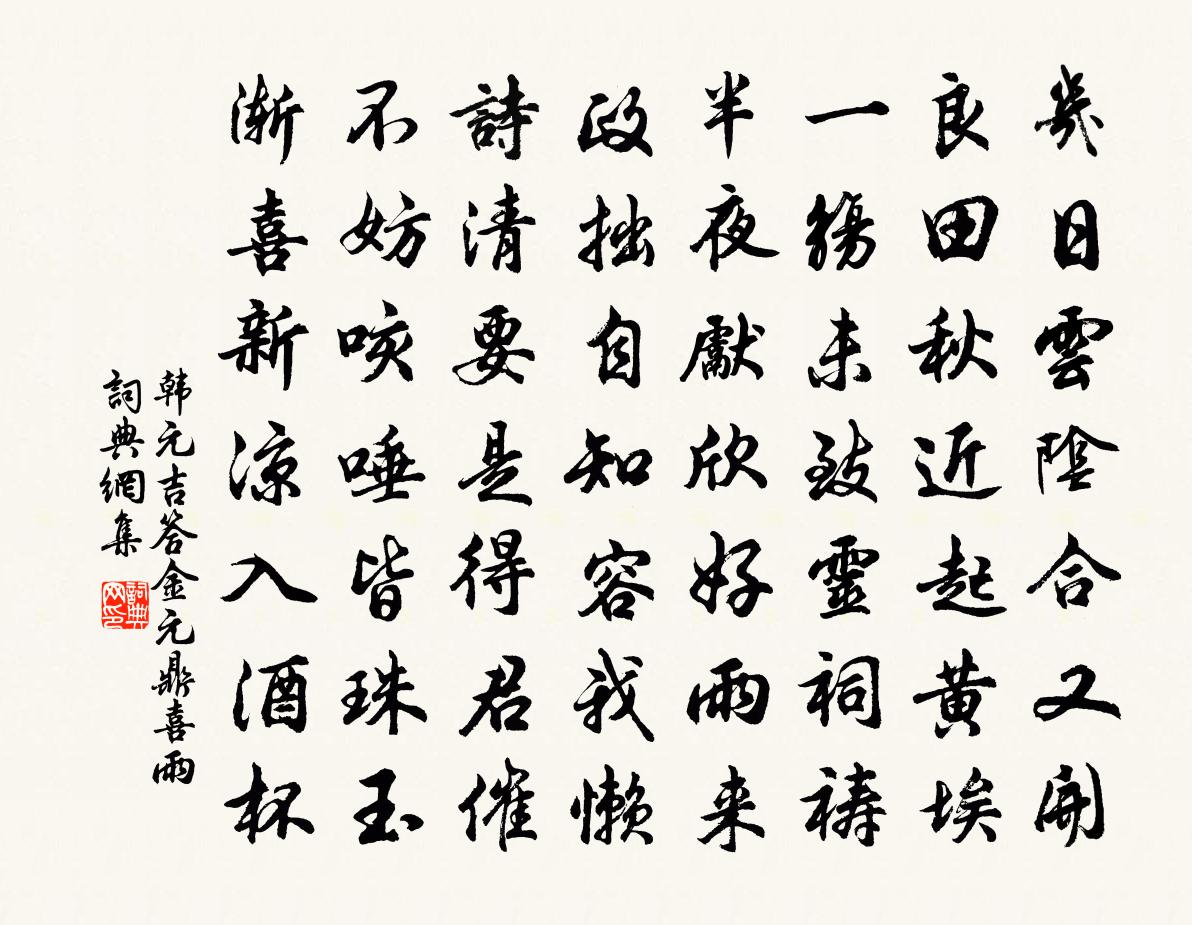 幾日雲陰合又開
良田秋近起黃埃
一觴未致靈祠禱
半夜獻欣好雨来
政拙自知容我懶
詩清要是得君催
不妨咳唾皆珠玉
漸喜新涼入酒杯
韩元吉答金元鼎喜雨
詞典網集
詞典网印